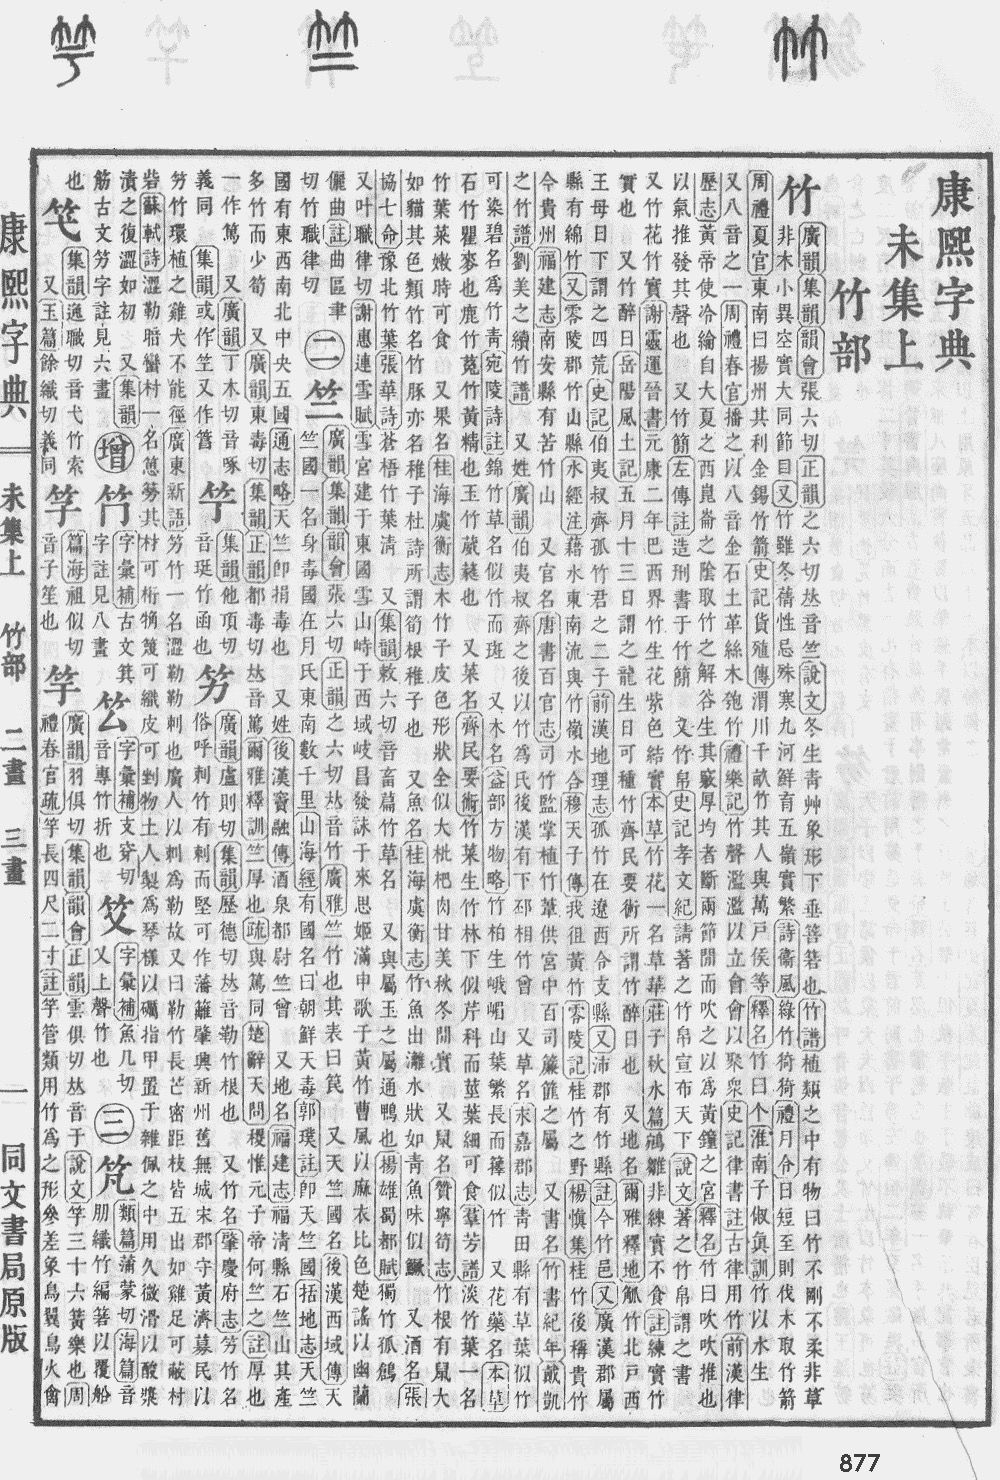 康熙字典
未集上
竹部
竹 廣韻集韻韻會張六切正韻之六切𠀤音竺說文冬生靑艸象形下垂箁箬也竹譜植類之中有物曰竹不剛不柔非草
非木小異空實大同節目又竹雖冬蒨性忌殊寒九河鮮育五嶺實繁詩衞風綠竹猗猗禮月令日短至則伐木取竹箭
周禮夏官東南曰揚州其利金錫竹箭史記貨殖傳渭川千畝竹其人與萬戸侯等釋名竹曰个淮南子俶眞訓竹以水生
又八音之一周禮春官播之以八音金石土革絲木匏竹禮樂記竹聲濫濫以立會會以聚衆史記律書註古律用竹前漢律
歷志黃帝使泠綸自大夏之西崑崙之隂取竹之解谷生其竅厚均者斷兩節閒而吹之以爲黃鐘之宮釋名竹曰吹吹推也
以氣推發其聲也 又竹簡左傳註造刑書于竹簡 又竹帛史記孝文紀請著之竹帛宣布天下說文著之竹帛謂之書
又竹花竹實謝靈運晉書元康二年巴西界竹生花紫色結實本草竹花一名草華莊子秋水篇鵷雛非練實不食註練實竹
實也 又竹醉日岳陽風土記五月十三日謂之龍生日可種竹齊民要術所謂竹醉日也 又地名爾雅釋地觚竹北戸西
王母日下謂之四荒史記伯夷叔齊孤竹君之二子前漢地理志孤竹在遼西令支縣又沛郡有竹縣註今竹邑又廣漢郡屬
縣有綿竹又零陵郡竹山縣水經注藉水東南流與竹嶺水合穆天子傳我徂黃竹零陵記桂竹之野楊愼集桂竹後稱貴竹
今貴州福建志南安縣有苦竹山 又官名唐書百官志司竹監掌植竹葦供宮中百司簾篚之屬 又書名竹書紀年戴凱
之竹譜劉美之續竹譜 又姓廣韻伯夷叔齊之後以竹爲氏後漢有下邳相竹曾 又草名永嘉郡志靑田縣有草葉似竹
可染碧名爲竹靑宛陵詩註錦竹草名似竹而斑 又木名益部方物略竹柏生峨嵋山葉繁長而籜似竹 又花藥名本草
石竹瞿麥也鹿竹菟竹黃精也玉竹葳蕤也 又菜名齊民要術竹菜生竹林下似芹科而莖葉細可食羣芳譜淡竹葉一名
竹葉菜嫩時可食 又果名桂海虞衡志木竹子皮色形狀全似大枇杷肉甘美秋冬閒實 又鼠名贊寧筍志竹根有鼠大
如貓其色類竹名竹豚亦名稚子杜詩所謂筍根稚子也 又魚名桂海虞衡志竹魚出灕水狀如靑魚味似鱖 又酒名張
協七命豫北竹葉張華詩蒼梧竹葉淸 又集韻敕六切音畜萹竹草名 又與屬玉之屬通鴨也揚雄蜀都賦獨竹孤鶬
又叶職律切謝惠連雪賦雪宮建于東國雪山峙于西域岐昌發詠于來思姬滿申歌于黃竹曹風以麻衣比色楚謠以幽蘭
儷曲註曲區聿切竹職律切
二 竺 廣韻集韻韻會張六切正韻之六切𠀤音竹廣雅竺竹也其表曰笢 又天竺國名後漢西域傳天
竺國一名身毒國在月氏東南數千里山海經有國名曰朝鮮天毒郭璞註卽天竺國括地志天竺
國有東西南北中央五國通志略天竺卽捐毒也 又姓後漢竇融傳酒泉都尉竺曾 又地名福建志福淸縣石竺山其產
多竹而少筍 又廣韻東毒切集韻正韻都毒切𠀤音篤爾雅釋訓竺厚也疏與篤同楚辭天問稷惟元子帝何竺之註厚也
一作篤 又廣韻丁木切音啄義同 集韻或作笁又作䈞
竹 集韻他頂切音珽竹函也
竻 廣韻盧則切集韻歷德切𠀤音勒竹根也 又竹名肇慶府志竻竹名
俗呼刺竹有刺而堅可作藩籬肇與新州舊無城宋郡守黃濟募民以
竻竹環植之雞犬不能徑廣東新語竻竹一名澀勒勒刺也廣人以刺爲勒故又曰勒竹長芒密距枝皆五出如雞足可蔽村
砦蘇軾詩澀勒暗蠻村一名慈竻其材可桁桷篾可織皮可剉物土人製爲琴樣以礪指甲置于雜佩之中用久微滑以酸漿
漬之復澀如初 又集韻筋古文竻字註見六畫
增 竹 字彙補古文箕字註見八畫
厹 字彙補支穿切音專竹折也
笅 字彙補魚几切又上聲竹也
三 笂 類篇蒲蒙切海篇音朋織竹編箬以覆船也
笁 集韻逸職切音弋竹索也 又玉篇餘織切義同
笇 篇海祖似切音子笙也
竽 廣韻羽俱切集韻韻會正韻雲俱切𠀤音于說文竽三十六簧樂也周
禮春官疏竽長四尺二寸註竽管類用竹爲之形參差象鳥翼鳥火禽
康熙字典 未集上 竹部 二畫 三畫 一 同文書局原版
877